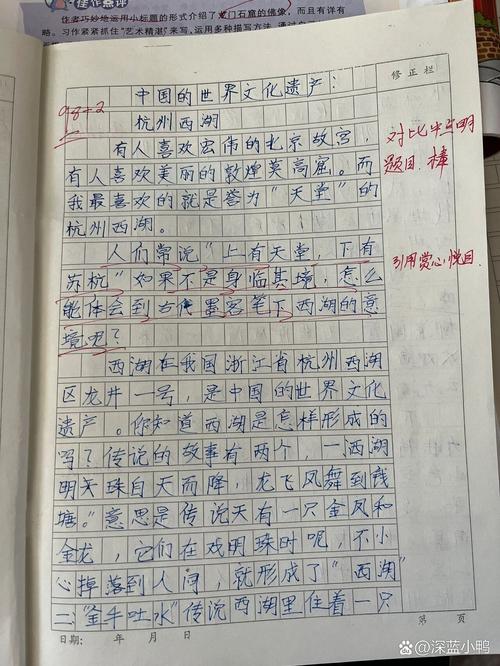 佳作点评
住者巧妙地运用小标题的形式介绍了龙门石窟的佛像，而且有详有
略。习作紧紧抓住“艺术精湛”来写，运用多种描写方法，通过
修正栏
98+2
中国的世界文化遗产：
杭州西湖
有人喜欢宏伟的北京故宫，
有人喜欢美丽的敦煌莫高窟。而
我最喜欢的就是誉为“天堂”的
杭州西湖。
对比中点明
题目.棒
人们常说“上有天堂，下有
苏杭”如果不是身临其境，怎么
能体会到古代墨客笔下西湖的意
境呢？
引用赏心悦目.
西湖在我国浙江省杭州西湖
区龙井一号，是中国的世界文化
遗产。你知道西湖是怎样形成的
吗？传说的故事有两个，一西湖
明天珠自天而降，龙飞凤舞到钱
塘。”意思是传说天有一只金凤和
金龙，它们在戏明珠时呢，不小
心掉落到人间，就形成了“西湖”
二“金牛吐水”传说西湖里住着一只
日期： 年 月 日
第 页
@深蓝小鸭